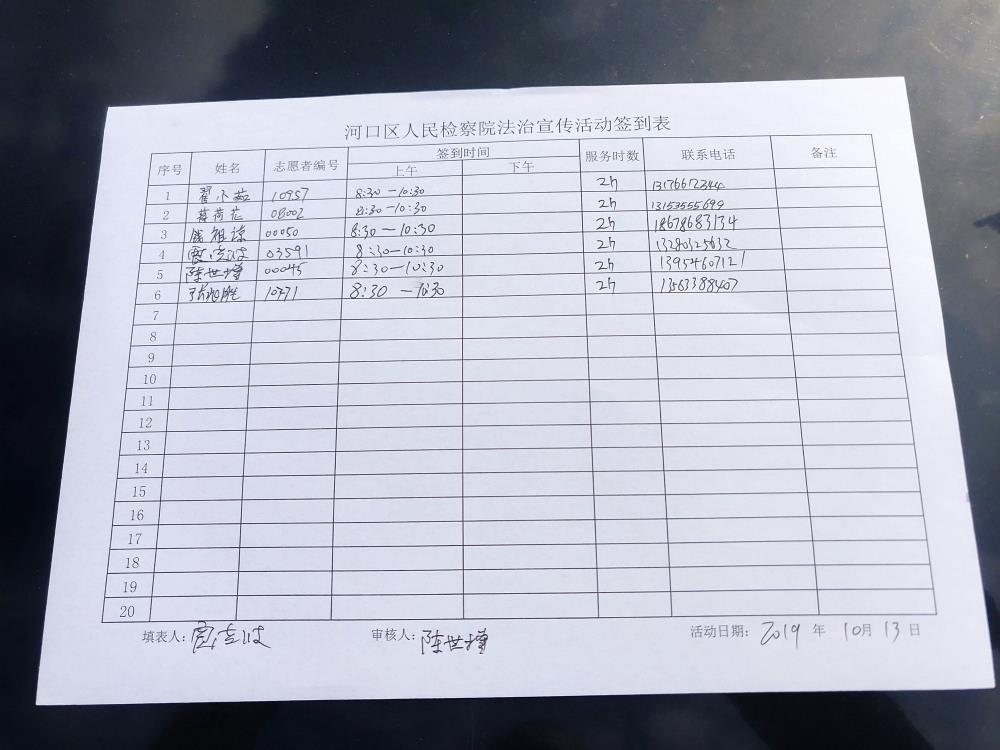 河口区人民检察院法治宣传活动签到表
序号 姓名 志愿者编号 签到时间 服务时数 联系电话 备注
上午 下午
1 翟小茹 10957 8:30—10:30 2h 13176672344
2 蒋荷花 08002 8:30—10:30 2h 13153555699
3 祖谅 00050 8:30—10:30 2h 18678683134
4 03591 8:30—10:30 2h 13280325632
5 陈世增 00045 8:30—10:30 2h 13954607121
6 10771 8:30—10:30 2h 13563388407
7
8
9
10
11
12
13
14
15
16
17
18
19
20
填表人: 审核人:陈世增 活动日期:2019年10月13日